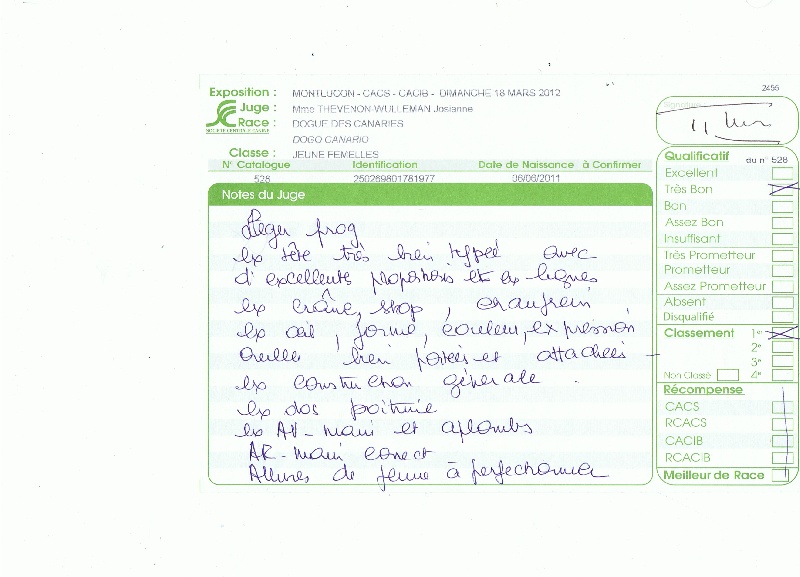 2456
Exposition : MONTLUCON - CACS - CACIB - DIMANCHE 18 MARS 2012
Juge : Mme THEVENON-WULLEMAN Josianne
Race : DOGUE DES CANARIES
SOCIETE CENTRALE CANINE
DOGO CANARIO
Classe : JEUNE FEMELLES
N° Catalogue Identification Date de Naissance à Confirmer
528 250269801781977 06/06/2011
Notes du Juge
Léger prog
ex tête très bien typée avec
d'excellents proportions et ex lignes
ex crâne, stop, chanfrein
ex œil, forme, couleur, expression
oreille bien portées et attachées
ex construction générale.
ex dos poitrine
ex AV-main et aplombs
AR-main corect
Allures de jeune à perfectionner
Signature
Qualificatif du n° 528
Excellent
Très Bon
Bon
Assez Bon
Insuffisant
Très Prometteur
Prometteur
Assez Prometteur
Absent
Disqualifié
Classement 1er
2e
3e
Non Classé 4e
Récompense
CACS
RCACS
CACIB
RCACIB
Meilleur de Race